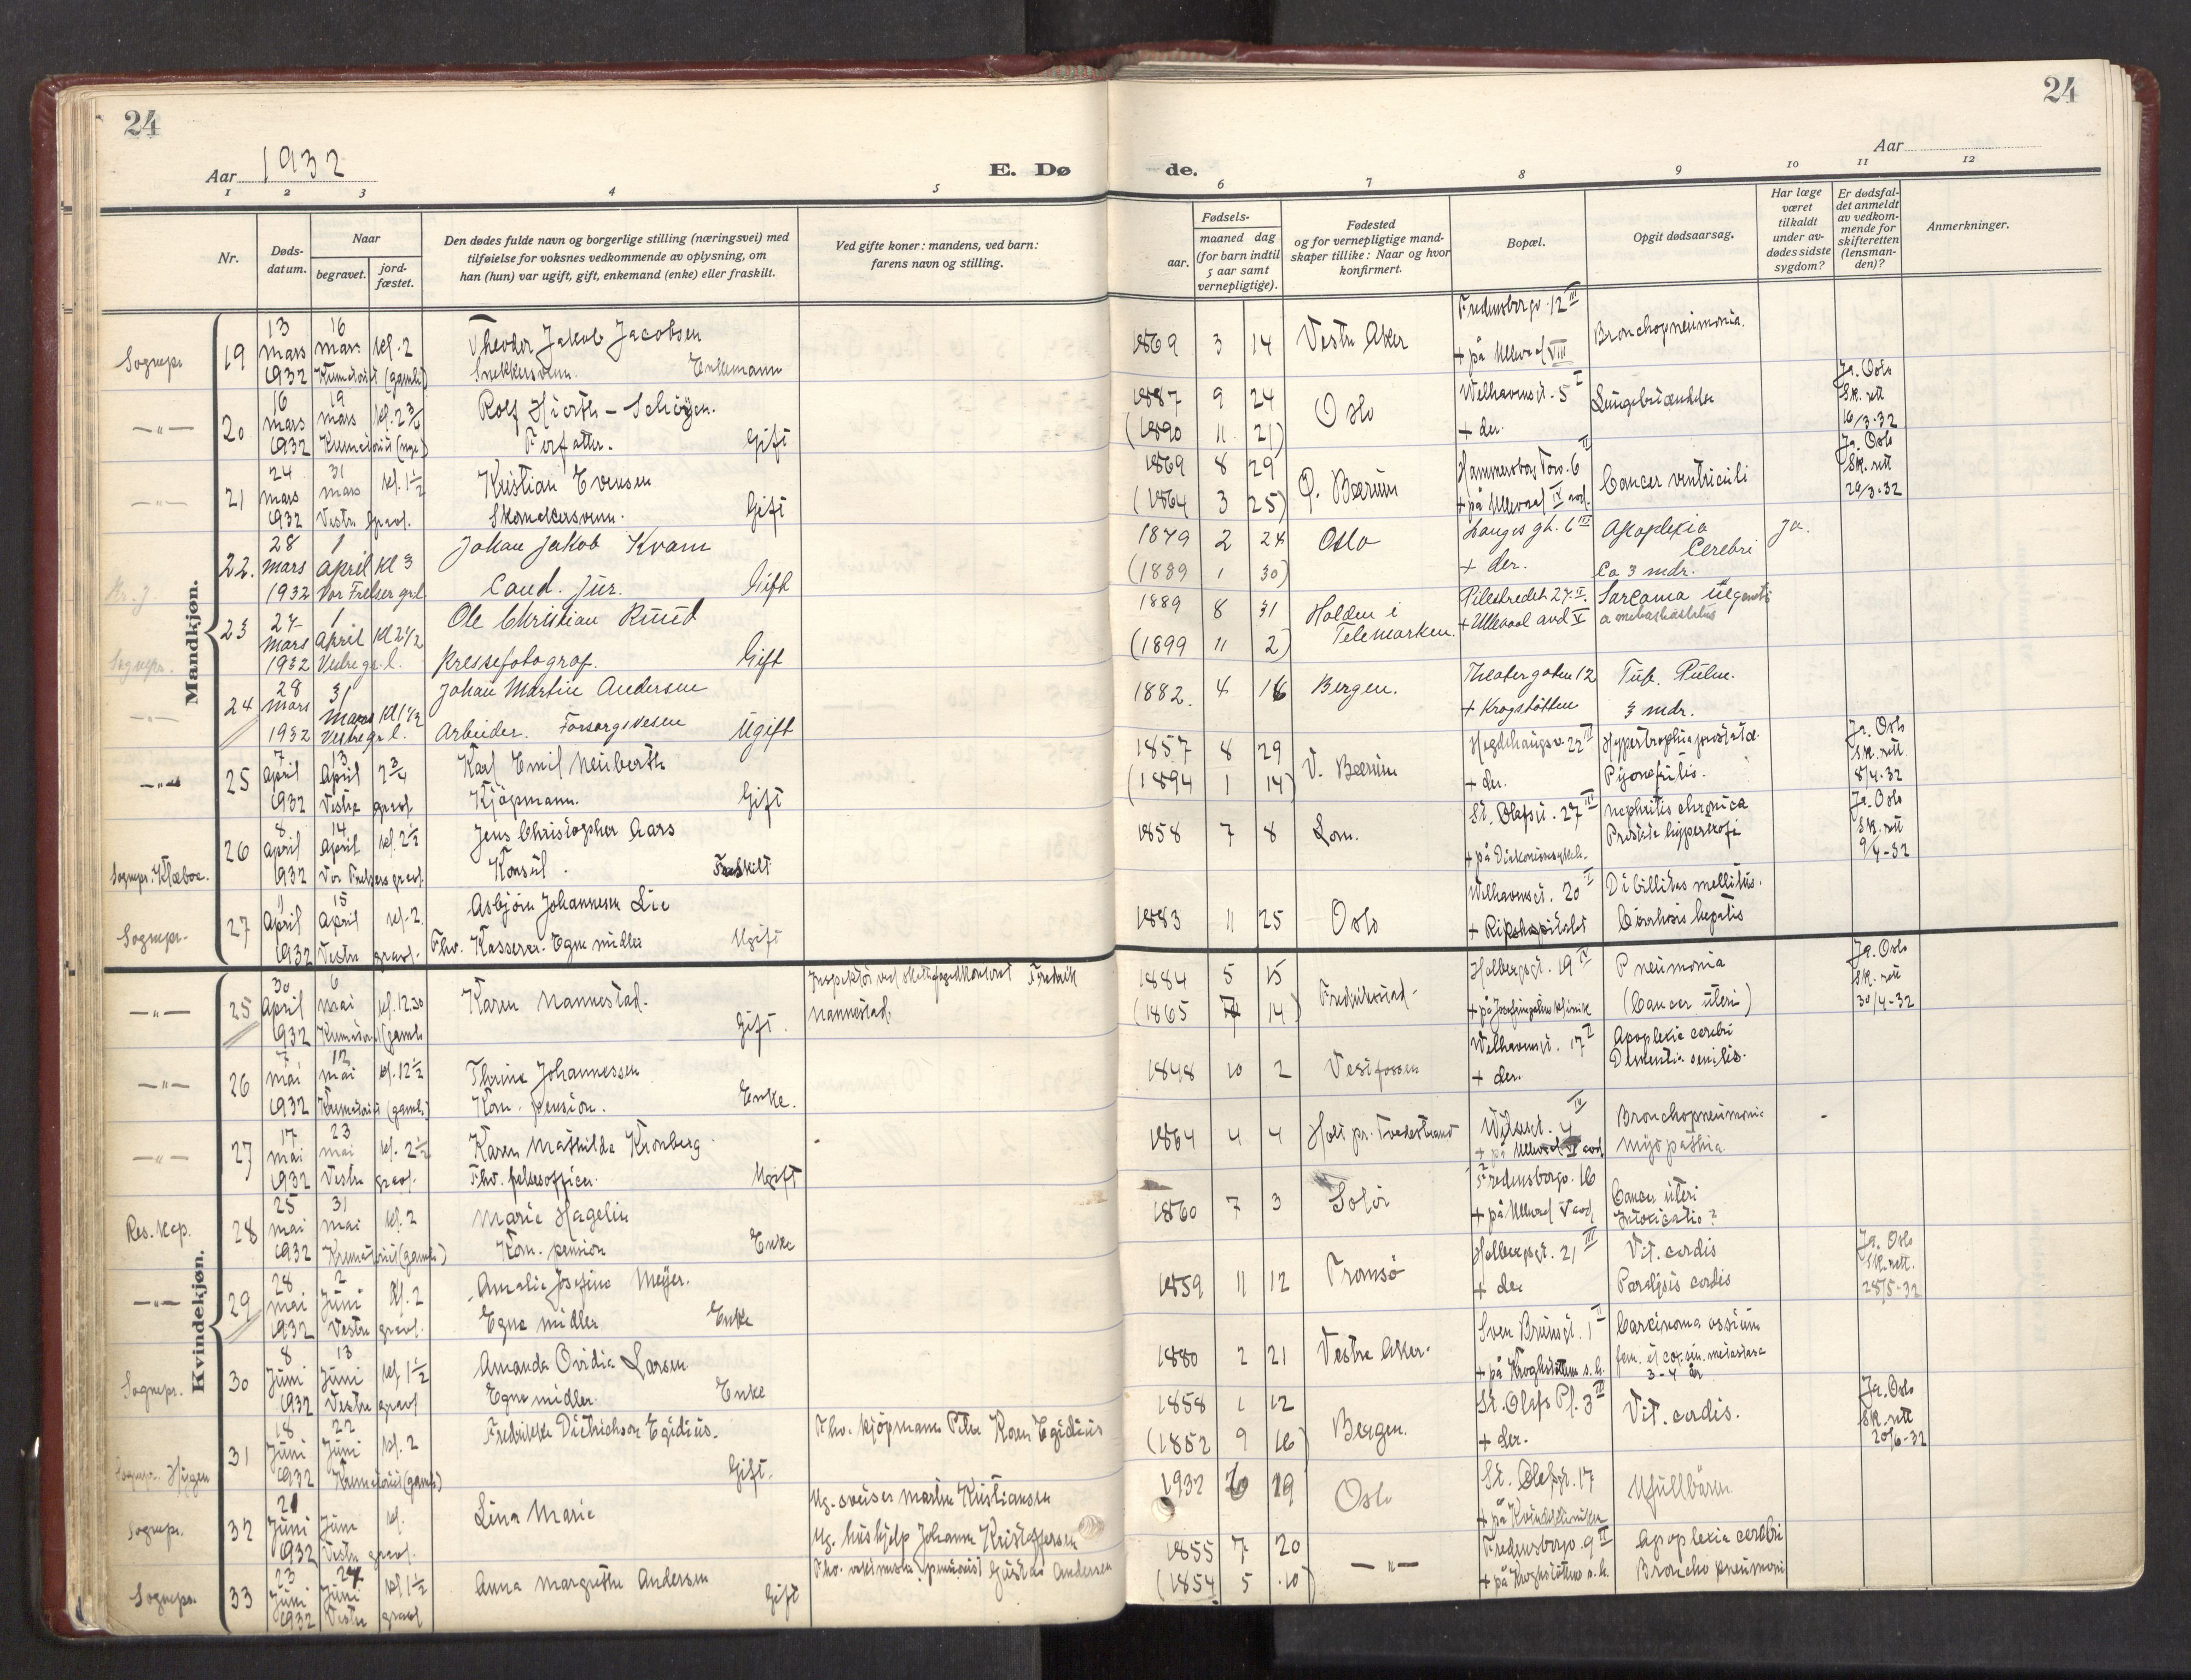 24
Aar 1932
E. Dø
1 2 3 4 5
Nr.
Døds-
datum.
Naar
begravet.
jord-
fæstet.
Den dødes fulde navn og borgerlige stilling (næringsvei) med
tilføielse for voksnes vedkommende av oplysning, om
han (hun) var ugift, gift, enkemand (enke) eller fraskilt.
Ved gifte koner: mandens, ved barn:
farens navn og stilling.
Mandkjøn.
13 16
Sognepr. 19 mars mars kl. 2 Theodor Jakob Jacobsen
1932 Krematoriet (gamle) Snekkersvenn. Enkemann
16 19
—„— 20 mars mars kl. 2 3/4 Rolf Hiorth-Schøyen.
1932 Krematoriet (nye) Forfatter. Gift
24 31
—„— 21 mars mars kl. 1 1/2 Kristian Evensen
1932 Vestre gravl. Skomakersvenn. Gift
28 1
22. mars april kl 3 Johan Jakob Kvam
1932 Vor Frelser grl. Cand. jur. Gift
27 1
23 mars april kl 2 1/2 Ole Christian Ruud
Sognepr. 1932 Vestre gr. l. Pressefotograf. Gift
28 31
—„— 24 mars mars kl 1 1/2 Johan Martin Andersen
1932 Vestre gr l. Arbeider. Forsorgsvesen Ugift
7 13
—„— 25 April April 2 3/4 Karl Emil Neuberth
1932 Vestre gravl. Kjøpmann. Gift
8 14
26 April April kl. 2 1/2 Jens Christopher Aars
Sognepr. Klæboe. 1932 Vor Frelsers gravl. Konsul. Fraskilt
9 15
Sognepr. 27 April April kl. 2. Asbjørn Johannesen Lie
1932 Vestre gravl. Fhv. Kasserer. Egne midler Ugift
Kvindekjøn.
30 6
—„— 25 April mai kl. 12.30 Karen Nannestad. Fredrik
1932 Gift. Nannestad.
7 12
—„— 26 mai mai kl. 12 1/2 Thrine Johannessen
1932 Krematoriet (gamle) Kom. pension. Enke.
17 23
—„— 27 mai mai kl. 2 1/2 Karen Mathilde Kronberg
1932 Vestre gravl. Fhv. Ugift
25 31
Res. kap. 28 mai mai kl. 2 Marie Hagelin
1932 Krematoriet (gamle) Kom. pension Enke
28 2
—„— 29 mai Juni kl. 2 Amalie Josefine Meyer.
1932 Vestre gravl. Egne midler Enke
8 13
Sognepr. 30 Juni Juni kl 1 1/2 Amanda Ovidia Larsen
1932 Vestre gravl Egne midler. Enke
18 22
31 Juni Juni kl. 2 Fredrikke Dietrichson Egidius. Fhv. kjøpmann Peter Koren Egidius
1932 Krematoriet (gamle) Gift.
21
Sognepr. 32 Juni Juni kl. Lina Marie Ug. sveiser Martin Kristiansen
1932 Vestre gravl. Ug. hushjelp Johanne Kristoffersen
23 27
Sognepr. 33 Juni Juni kl 1 1/2 Anna Margrethe Andersen Fhv. (pensionist) Gustav Andersen
1932 Vestre gravl Gift
24
Aar
de.
6 7 8 9 10 11 12
Fødsels-
aar.
maaned dag
(for barn indtil
5 aar samt
vernepligtige).
Fødested
og for vernepligtige mand-
skaper tillike: Naar og hvor
konfirmert.
Bopæl.
Opgit dødsaarsag.
Har læge
været
tilkaldt
under av-
dødes sidste
sygdom?
Er dødsfal-
det anmeldt
av vedkom-
mende for
skifteretten
(lensman-
den)?
Anmerkninger.
Fredensborgv. 12 III
1869 3 14 Vestre Aker Bronchopneumonia.
+ på Ullevaal VIII
1887 9 24 Oslo Welhavensgt. 5 I Lungebrand Ja. Oslo
(1890 11 21) + der. Sk. rett
16/3-32
1869 8 29 Ø. Bærum Hammersborg Torv. 6 II Cancer ventriculi Ja. Oslo
(1864 3 25) + på Ullevaal IV avd. Sk. rett
29/3-32
1879 2 24 Oslo Langes gt. 6 III Apoplexia Cerebri Ja.
(1889 1 30) + der. Ca 3 mdr.
1889 8 31 Holden i Telemarken. Pilestredet 27 II. Sarcoma
(1899 11 2) + Ullevaal avd V
1882. 4 16 Bergen. Theatergaten 12 Tub. Pulm.
+ Krogstøtten 3 mdr.
1857 8 29 V. Bærum Hegdehaugsv. 22 II Hypertrophia prostatæ Ja. Oslo
(1894 1 14) + der. Sk. rett.
8/4-32
1858 7 8 Lom. St. Olafsgt. 27 III Nephritis chronica Ja. Oslo
+ på Diakonissesykeh. Sk. rett
9/4-32
1883 11 25 Oslo Welhavensgt. 20 I mellitus.
+ Rikshospitalet Cirrhosis hepatis
1884 5 15 Fredrikstad. Holbergsgt. 19 IV Pneumonia Ja. Oslo
(1865 7 14) (Cancer uteri) Sk. rett
30/4-32
1848 10 2 Vestfossen Welhavensgt. 17 I Apoplexie cerebri
+ der. Dementia senilis.
1864 4 4 Holt pr. Tvedestrand 4 IV Bronchopneumonie
+ på Ullevaal VI avd Myopathia
1860 7 3 Solør Fredensborgv. 16 Cancer uteri
+ på Ullevaal V avd Intoxicatio?
1859 11 12 Tromsø Holbergsgt. 21 III Vit. cordis Ja. Oslo
+ der Paralysis cordis Sk. rett.
28/5-32
1880 2 21 Vestre Aker. Sven Brunsgt. 1 II Carcinoma ossium
+ på Kroghstøtten s.h. 3-4 år
1858 1 12 Bergen. St. Olafs Pl. 3 II Vit. cordis. Ja. Oslo
(1852 9 16) + der. Sk. rett
20/6-32
1932 6 19 Oslo St. Olafsgt. 17 Ufullbåren
+ på Kvindeklinikken
1855 7 20 —„— Fredensborgv. 9 II Apoplexia cerebri
(1854 5 10) + på Kroghstøtten s.h. Broncho pneumoni